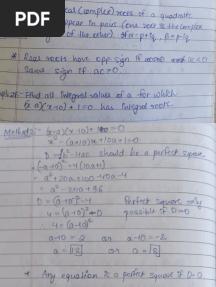 PDF
(complex) roots of a quadratic
appear in pairs (one root is the complex
of the other) if α = p+iq, β = p-iq
* Real roots have opp sign if
same sign if ac>0.
Find all integral values of a for which
(x-a)(x-10)+1=0 has integral roots.
Method 2:- (x-a)(x-10)+1=0
x² - (a+10)x + 10a + 1 = 0
D = b²-4ac should be a perfect square.
= (a+10)² - 4(10a+1)
= a² + 20a + 100 - 40a - 4
= a² - 20a + 96
D = (a-10)² - 4 Perfect square only
4 = (a-10)² - 0 possible if D=0
4 = (a-10)²
a-10 = 2 or a-10 = -2
a = 12 or a = 8
* Any equation is a perfect square if D=0